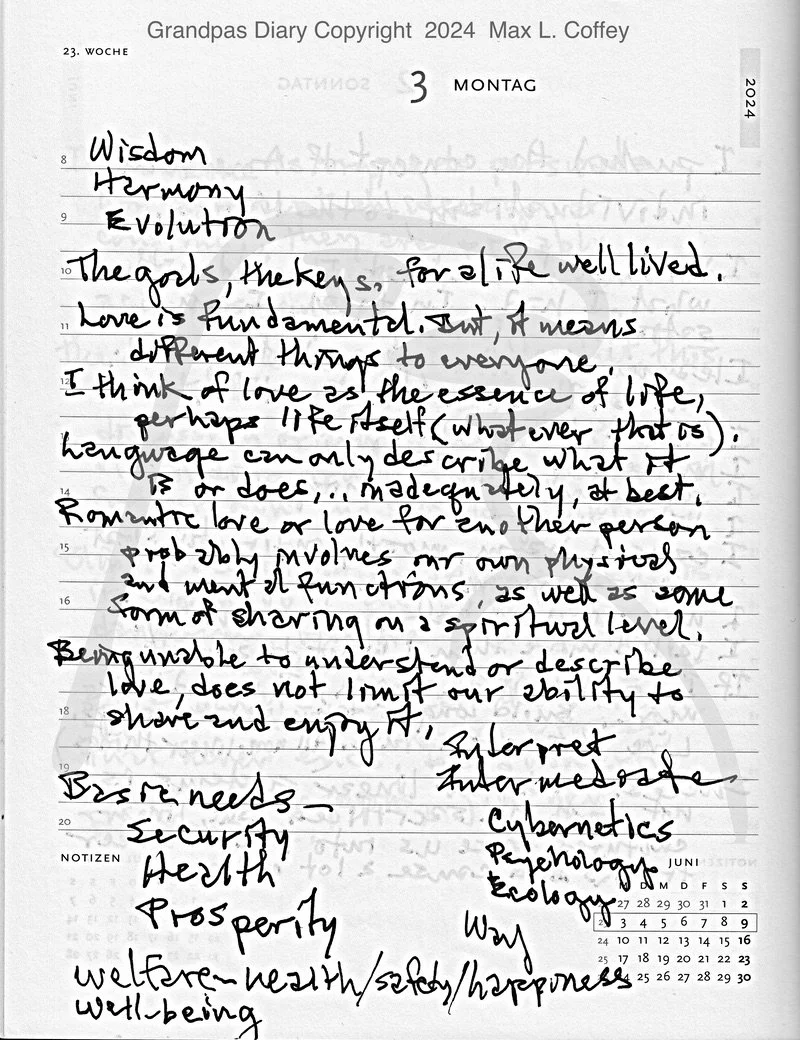 Grandpas Diary Copyright 2024 Max L. Coffey
23. WOCHE
3 MONTAG
2024
8 Wisdom
Harmony
9 Evolution
10 The goals, the keys, for a life well lived.
11 Love is fundamental. But, it means
different things to everyone.
12 I think of love as the essence of life,
perhaps life itself (whatever that is).
Language can only describe what it
14 is or does,... inadequately, at best.
Romantic love or love for another person
15 probably involves our own physical
and mental functions, as well as some
16 form of sharing on a spiritual level.
Being unable to understand or describe
love, does not limit our ability to
18 share and enjoy it.
Interpret
19 Intermediate
Basic needs—
20 Security
Cybernetics
Psychology
Ecology
NOTIZEN
Health
Prosperity
Way
welfare—health/safety/happiness
well-being
JUNI
M D M D F S S
27 28 29 30 31 1 2
23 3 4 5 6 7 8 9
24 10 11 12 13 14 15 16
25 17 18 19 20 21 22 23
25 26 27 28 29 30